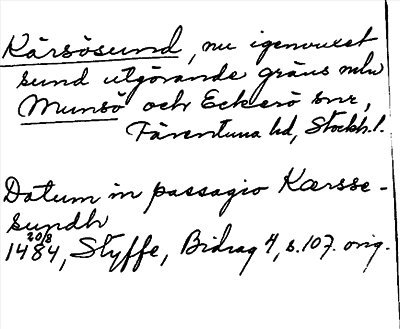 Kärsösund, nu igenvuxet
sund utgörande gräns mln
Munsö och Eckerö snr,
Färentuna hd, Stockh. l.
Datum in passagio Kærsse-
sundh
20/8
1484, Styffe, Bidrag 4, s. 107. orig.